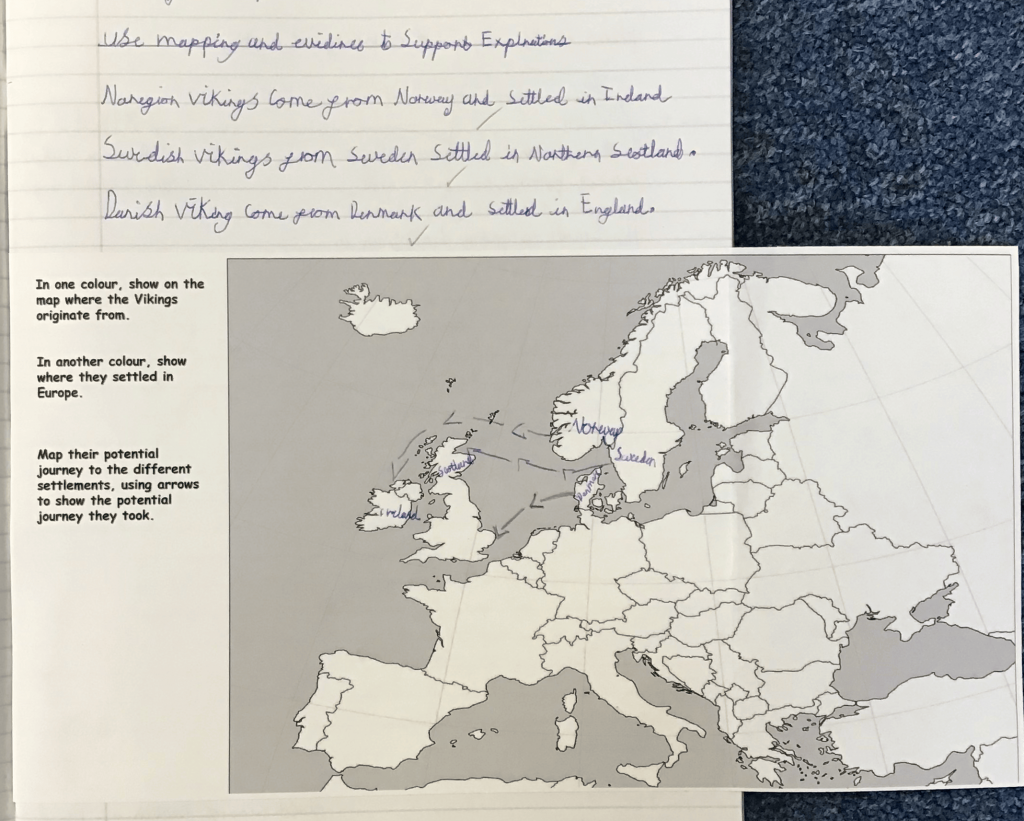 Use mapping and evidines to Support Explnations
Naregion Vikings Come from Norway and Settled in Ireland
Swedish Vikings from Sweden Settled in Northern Scotland.
Danish Viking Come from Denmark and settled in England.
In one colour, show on the
map where the Vikings
originate from.
In another colour, show
where they settled in
Europe.
Map their potential
journey to the different
settlements, using arrows
to show the potential
journey they took.
Norway
Sweden
Scotland
Ireland